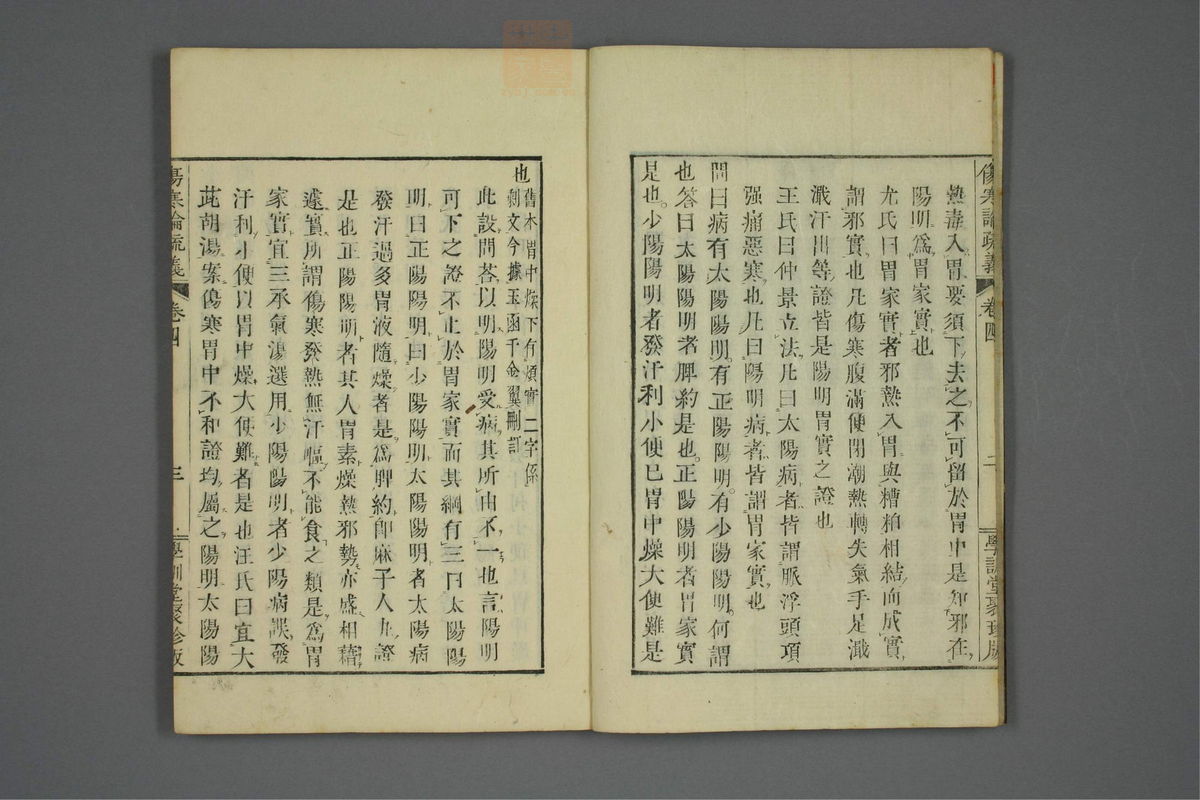 傷寒論疏義 卷四 二 學訓堂聚珍版
熱毒入胃要須下去之不可留於胃中是知邪在
陽明爲胃家實也
尤氏曰胃家實者邪熱入胃與糟粕相結而成實
謂邪實也凡傷寒腹滿便閉潮熱轉失氣手足濈
濈汗出等證皆是陽明胃實之證也
王氏曰仲景立法凡曰太陽病者皆謂脈浮頭項
强痛惡寒也凡曰陽明病者皆謂胃家實也
問曰病有太陽陽明有正陽陽明有少陽陽明何謂
也答曰太陽陽明者脾約是也正陽陽明者胃家實
是也少陽陽明者發汗利小便已胃中燥大便難是
也舊本胃中燥下有煩實二字係
剩文今據玉函千金翼刪訂
此設問荅以明陽明受病其所由不一也言陽明
可下之證不止於胃家實而其綱有三曰太陽陽
明曰正陽陽明曰少陽陽明太陽陽明者太陽病
發汗過多胃液隨燥者是爲脾約卽麻子人丸證
是也正陽陽明者其人胃素燥熱邪勢亦盛相藉
遽實所謂傷寒發熱無汗嘔不能食之類是爲胃
家實宜三承氣湯選用少陽陽明者少陽病誤發
汗利小便以胃中燥大便難者是也汪氏曰宜大
茈胡湯案傷寒胃中不和證均屬之陽明太陽陽
傷寒論疏義 卷四 三 學訓堂聚珍版